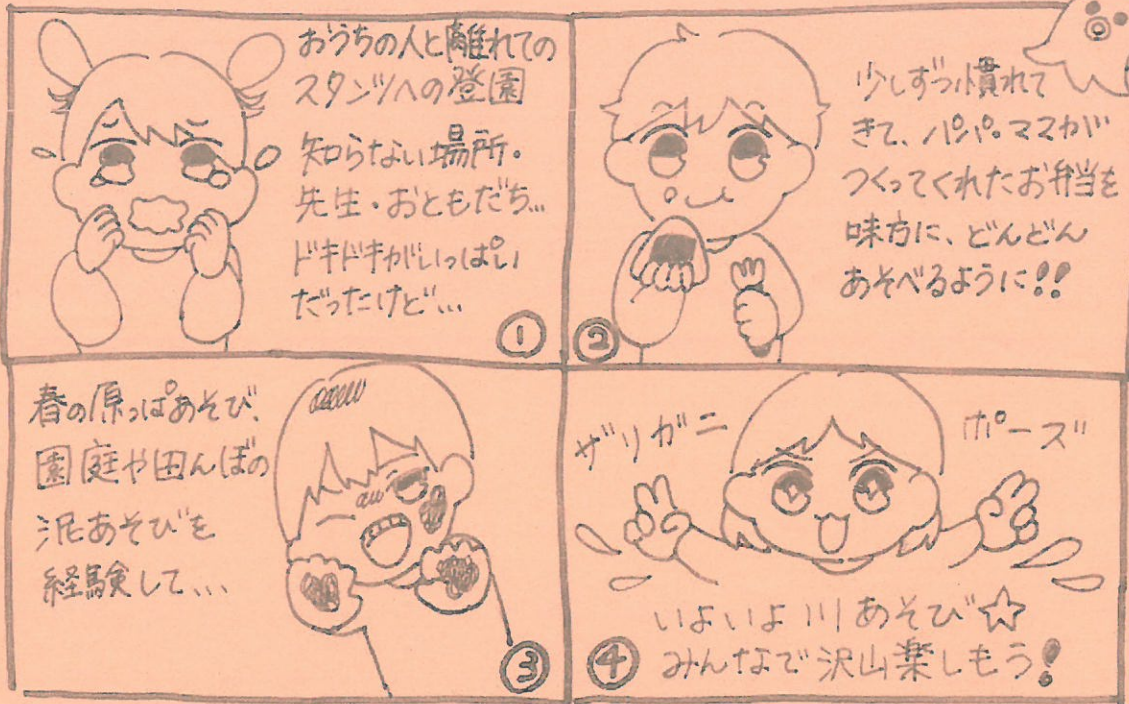 おうちの人と離れての
スタンツへの登園
知らない場所・
先生・おともだち…
ドキドキがいっぱい
だったけど…
①
少しずつ慣れて
きて、パパ・ママが
つくってくれたお弁当を
味方に、どんどん
あそべるように!!
②
春の原っぱあそび、
園庭や田んぼの
泥あそびを
経験して...
③
ザリガニ ポーズ
いよいよ川あそび☆
みんなで沢山楽しもう!
④